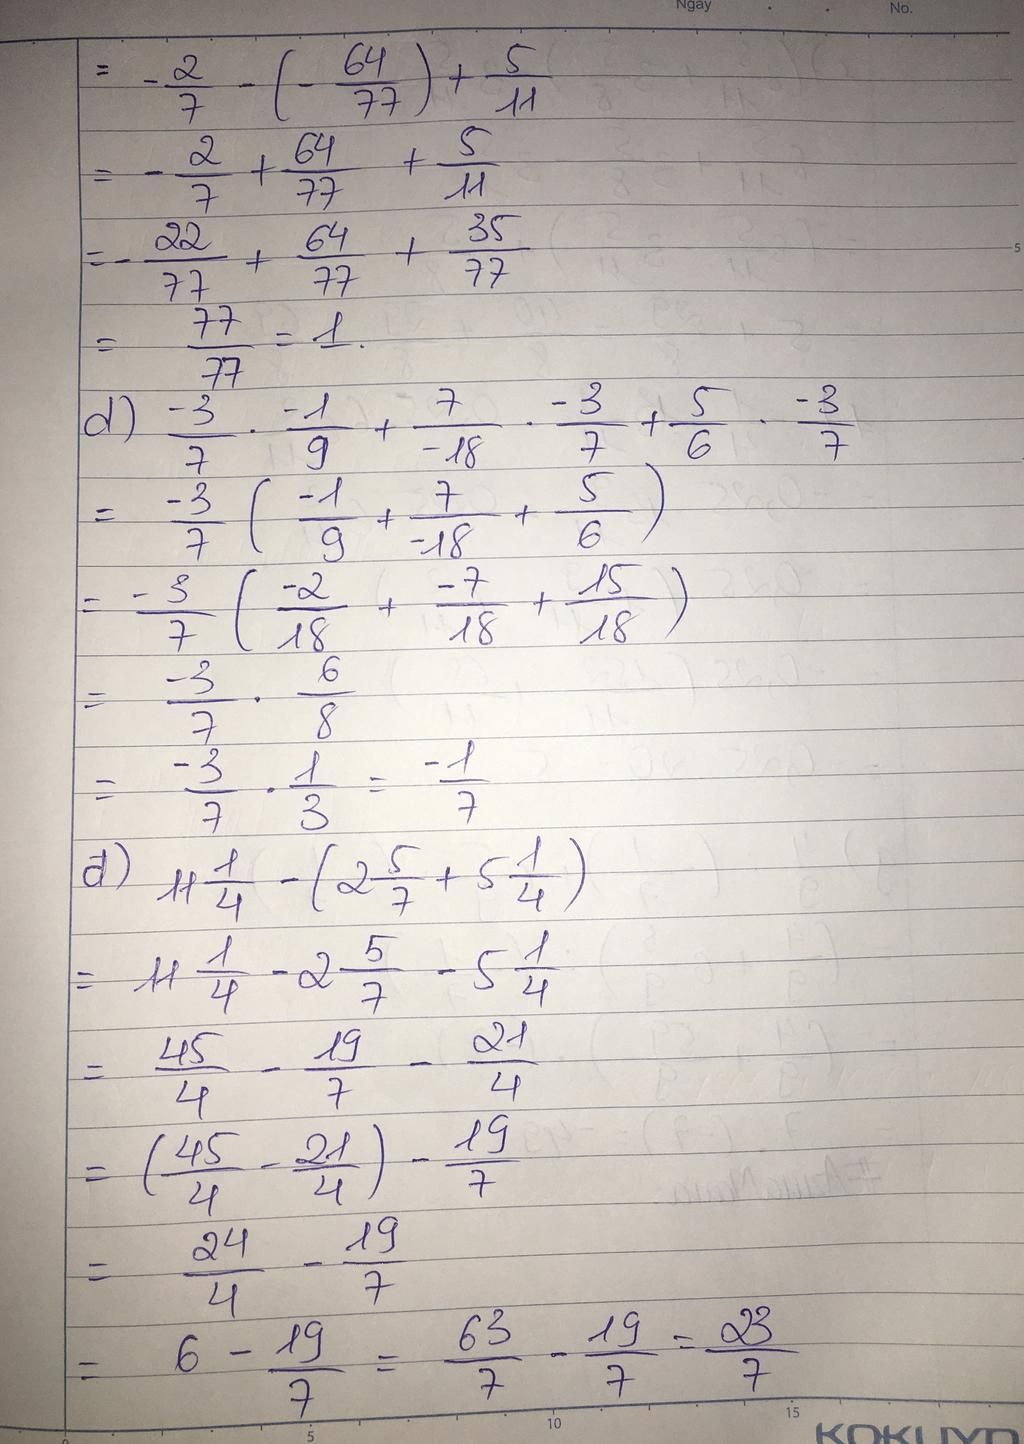 Ngày No.
= -2/7 - (-64/77) + 5/11
= -2/7 + 64/77 + 5/11
= -22/77 + 64/77 + 35/77
5
= 77/77 = 1.
d) -3/7 . -1/9 + 7/-18 . -3/7 + 5/6 . -3/7
= -3/7 (-1/9 + 7/-18 + 5/6)
= -3/7 (-2/18 + -7/18 + 15/18)
= -3/7 . 6/8
= -3/7 . 1/3 = -1/7
đ) 11 1/4 - (2 5/7 + 5 1/4)
= 11 1/4 - 2 5/7 - 5 1/4
= 45/4 - 19/7 - 21/4
= (45/4 - 21/4) - 19/7
= 24/4 - 19/7
= 6 - 19/7 = 63/7 - 19/7 = 23/7
0 5 10 15
KOKUYO